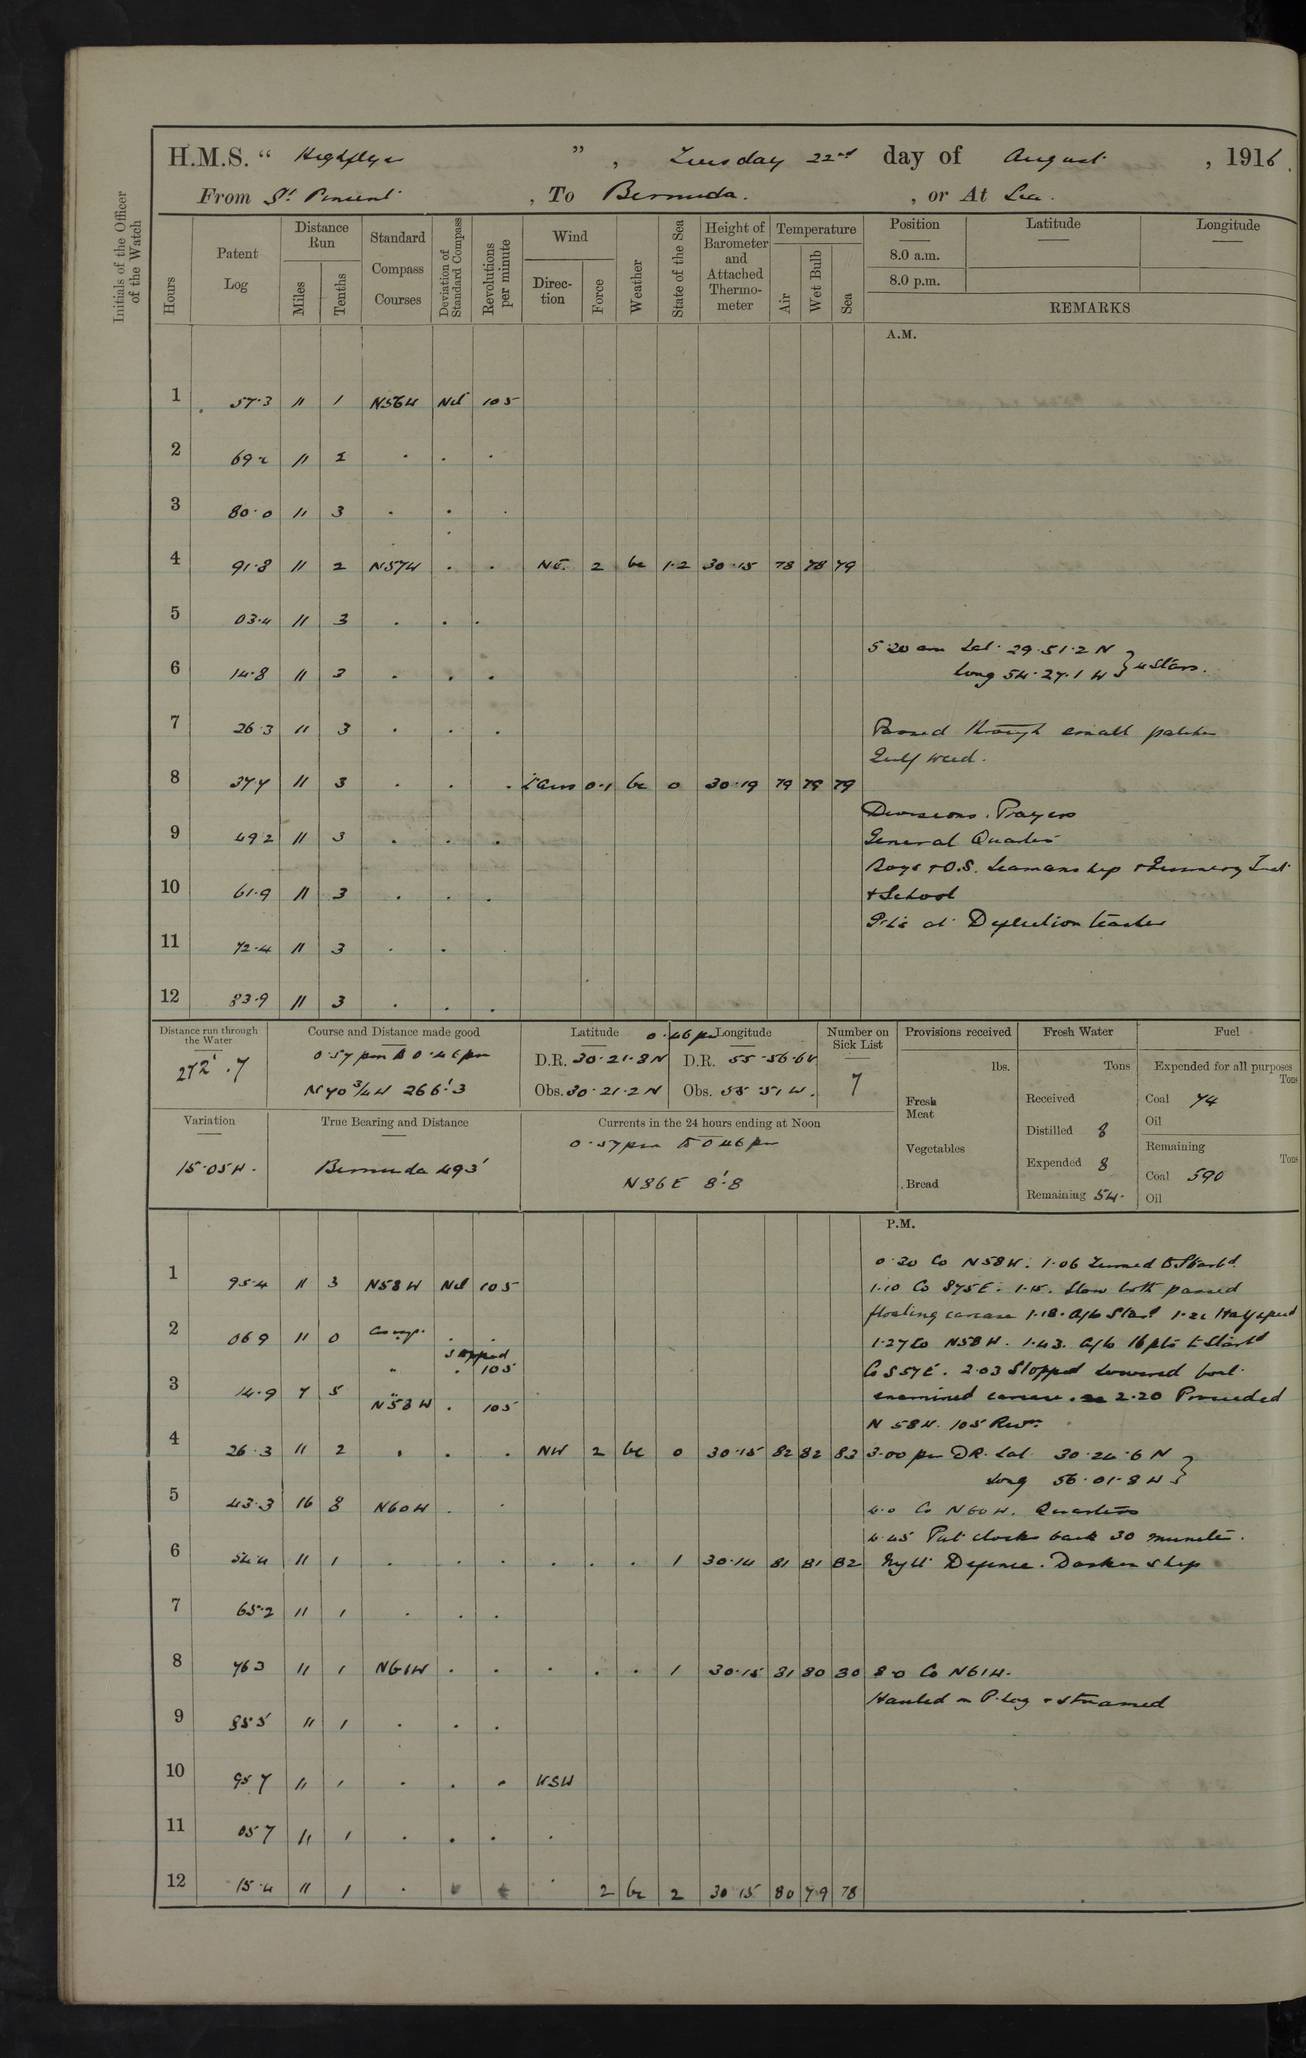 H.M.S. " Highflyer ", Tuesday 22nd day of August, 1916.
From St. Vincent, To Bermuda., or At Sea.
Initials of the Officer of the Watch
Hours Patent Log Distance Run Miles Tenths Standard Compass Courses Deviation of Standard Compass Revolutions per minute Wind Direction Force Weather State of the Sea Height of Barometer and Attached Thermometer Temperature Air Wet Bulb Sea
Position Latitude Longitude
8.0 a.m.
8.0 p.m.
REMARKS
A.M.
1 57.3 11 1 N56W Nil 105
2 69.2 11 2 . . .
3 80.0 11 3 . . .
4 91.8 11 2 N57W . . NE. 2 bc 1.2 30.15 78 78 79
5 03.4 11 3 . . .
5.20 am Lat. 29.51.2 N
6 14.8 11 3 . . .
Long 54.27.1 W } 4 Stars.
7 26.3 11 3 . . .
Passed through small patches
Gulf weed.
8 37.7 11 3 . . . 0.1 bc 0 30.19 79 79 79
Divisions. Prayers
9 49.2 11 3 . . .
General Quarters
Boys & O.S. Seamanship & Gunnery Inst
10 61.9 11 3 . . .
& School
at Deflection teacher
11 72.4 11 3 . .
12 83.9 11 3 . . .
Distance run through the Water
272'.7
Course and Distance made good
0.57 pm to 0.46 pm
N70 3/4 W 266'.3
Latitude 0.46 pm Longitude
D.R. 30.21.8 N D.R. 55.56.6 W
Obs. 30.21.2 N Obs. 55.51 W.
Number on Sick List
7
Provisions received
lbs.
Fresh Meat
Vegetables
Bread
Fresh Water
Tons
Received
Distilled 8
Expended 8
Remaining 54.
Fuel
Expended for all purposes
Tons
Coal 74
Oil
Remaining
Tons
Coal 590
Oil
Variation
15.05 W.
True Bearing and Distance
Bermuda 493'
Currents in the 24 hours ending at Noon
0.57 pm to 0.46 pm
N86E 8'.8
P.M.
0.20 Co N58W. 1.06 Turned to Starbd.
1 95.4 11 3 N58W Nil 105
1.10 Co S75E. 1.15. Slow both passed
floating carcase 1.18. a/c Starbd 1.21 Half speed
2 06.9 11 0 Comp. . .
1.27 Co N58W. 1.43. a/c 16 pts to Starbd
" . Stopped 105
Co S57E. 2.03 Stopped lowered boat
3 14.9 7 5 N58W . 105
examined carcase. 2.20 Proceeded
N 58 W. 105 Revs.
4 26.3 11 2 . . . NW 2 bc 0 30.15 82 82 83
3.00 pm DR. Lat. 30.24.6 N
Long 56.01.8 W }
5 43.3 16 8 N60W . .
4.0 Co N60W. Quarters
4.45 Put clocks back 30 minutes.
6 54.4 11 1 . . . . . . 1 30.14 81 81 82
Night Defence. Darken ship
7 65.2 11 1 . . .
8 76.3 11 1 N61W . . . . . 1 30.15 81 80 80
8.0 Co N61W.
Hauled in P. Log & streamed
9 85.5 11 1 . . .
10 95.7 11 1 . . . WSW
11 05.7 11 1 . . . .
12 15.4 11 1 . . 2 bc 2 30.15 80 79 78